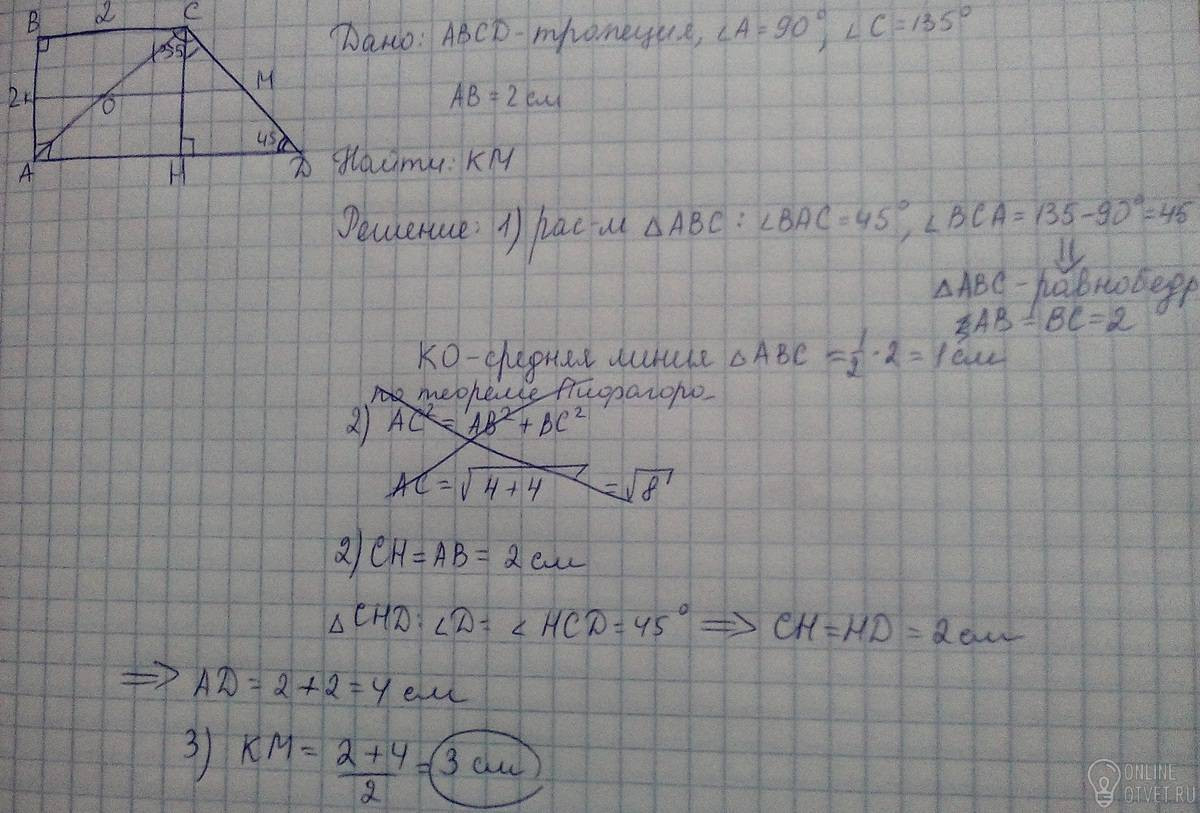 B 2 C
135
2 K O M
45
A H D
Дано: ABCD-трапеция, ∠A=90°, ∠C=135°
AB=2см
Найти: KM
Решение: 1) рас-м △ABC: ∠BAC=45°, ∠BCA=135-90°=45
⇓
△ABC-равнобедр
AB=BC=2
KO-средняя линия △ABC = 1/2·2=1см
по теореме Пифагора
2) AC²=AB²+BC²
AC=√4+4 =√8
2) CH=AB=2см
△CHD: ∠D= ∠HCD=45° ⇒ CH=HD=2см
⇒ AD=2+2=4см
3) KM= (2+4)/2 = 3 см
ONLINE
OTVET.RU